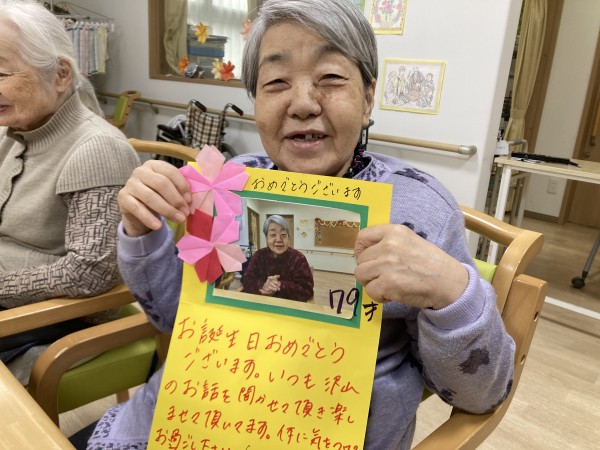 おめでとうございます
79才
お誕生日おめでとう
ございます。いつも沢山
のお話を聞かせて頂き楽し
ませて頂いてます。体に気をつけ
お過ごし